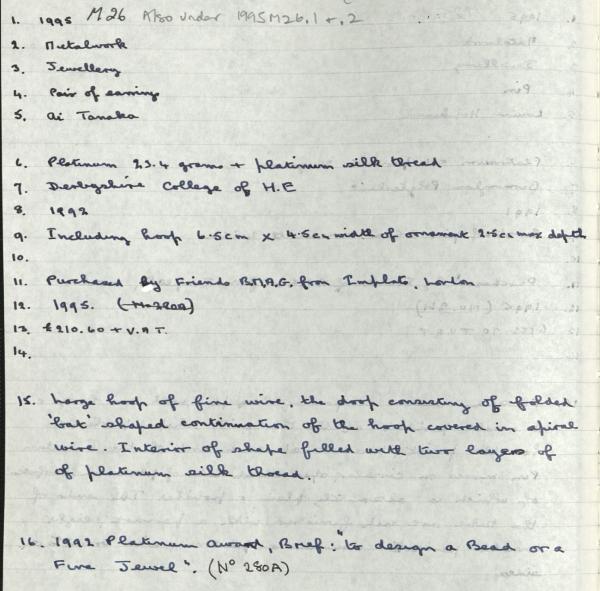 1. 1995 M26 Also under 1995M26.1 + .2
2. Metalwork
3. Jewellery
4. Pair of earrings
5. Ai Tanaka
6. Platinum 23.4 grams + platinum silk thread
7. Derbyshire College of H.E
8. 1992
9. Including hoop 6.5cm x 4.5cm width of ornament 2.5cm max depth
10.
11. Purchased by Friends B.M.A.G. from Implato, London
12. 1995.
13. £210.60 + V.A.T.
14.
15. Large hoop of fine wire, the drop consisting of folded
'bat' shaped continuation of the hoop covered in spiral
wire. Interior of shape filled with two layers of
of platinum silk thread.
16. 1992 Platinum award, Brief: "to design a Bead or a
Fine Jewel". (No 280A)